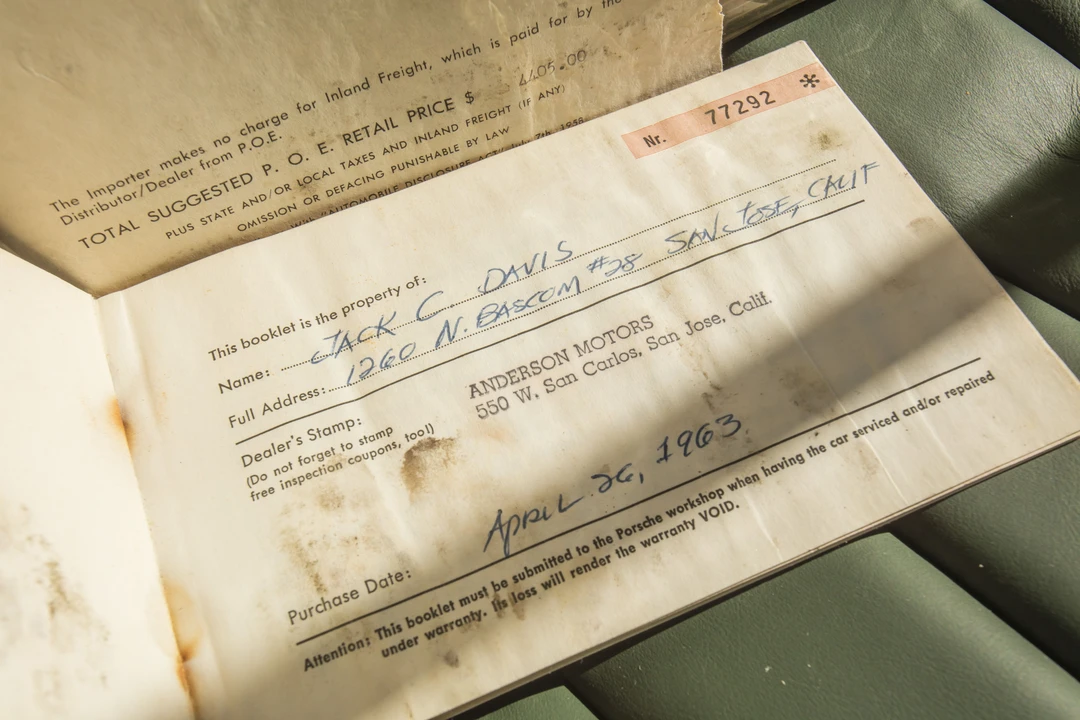 The Importer makes no charge for Inland Freight, which is paid for by the
Distributor/Dealer from P.O.E.
TOTAL SUGGESTED P. O. E. RETAIL PRICE $ 4405.00
PLUS STATE AND/OR LOCAL TAXES AND INLAND FREIGHT (IF ANY)
OMISSION OR DEFACING PUNISHABLE BY LAW
"AUTOMOBILE DISCLOSURE ACT" July 7th, 1958
Nr. 77292 *
This booklet is the property of:
Name: JACK C. DAVIS
Full Address: 1260 N. BASCOM #28 SAN JOSE, CALIF
Dealer's Stamp:
(Do not forget to stamp
free inspection coupons, too!)
ANDERSON MOTORS
550 W. San Carlos, San Jose, Calif.
Purchase Date: APRIL 26, 1963
Attention: This booklet must be submitted to the Porsche workshop when having the car serviced and/or repaired
under warranty. Its loss will render the warranty VOID.